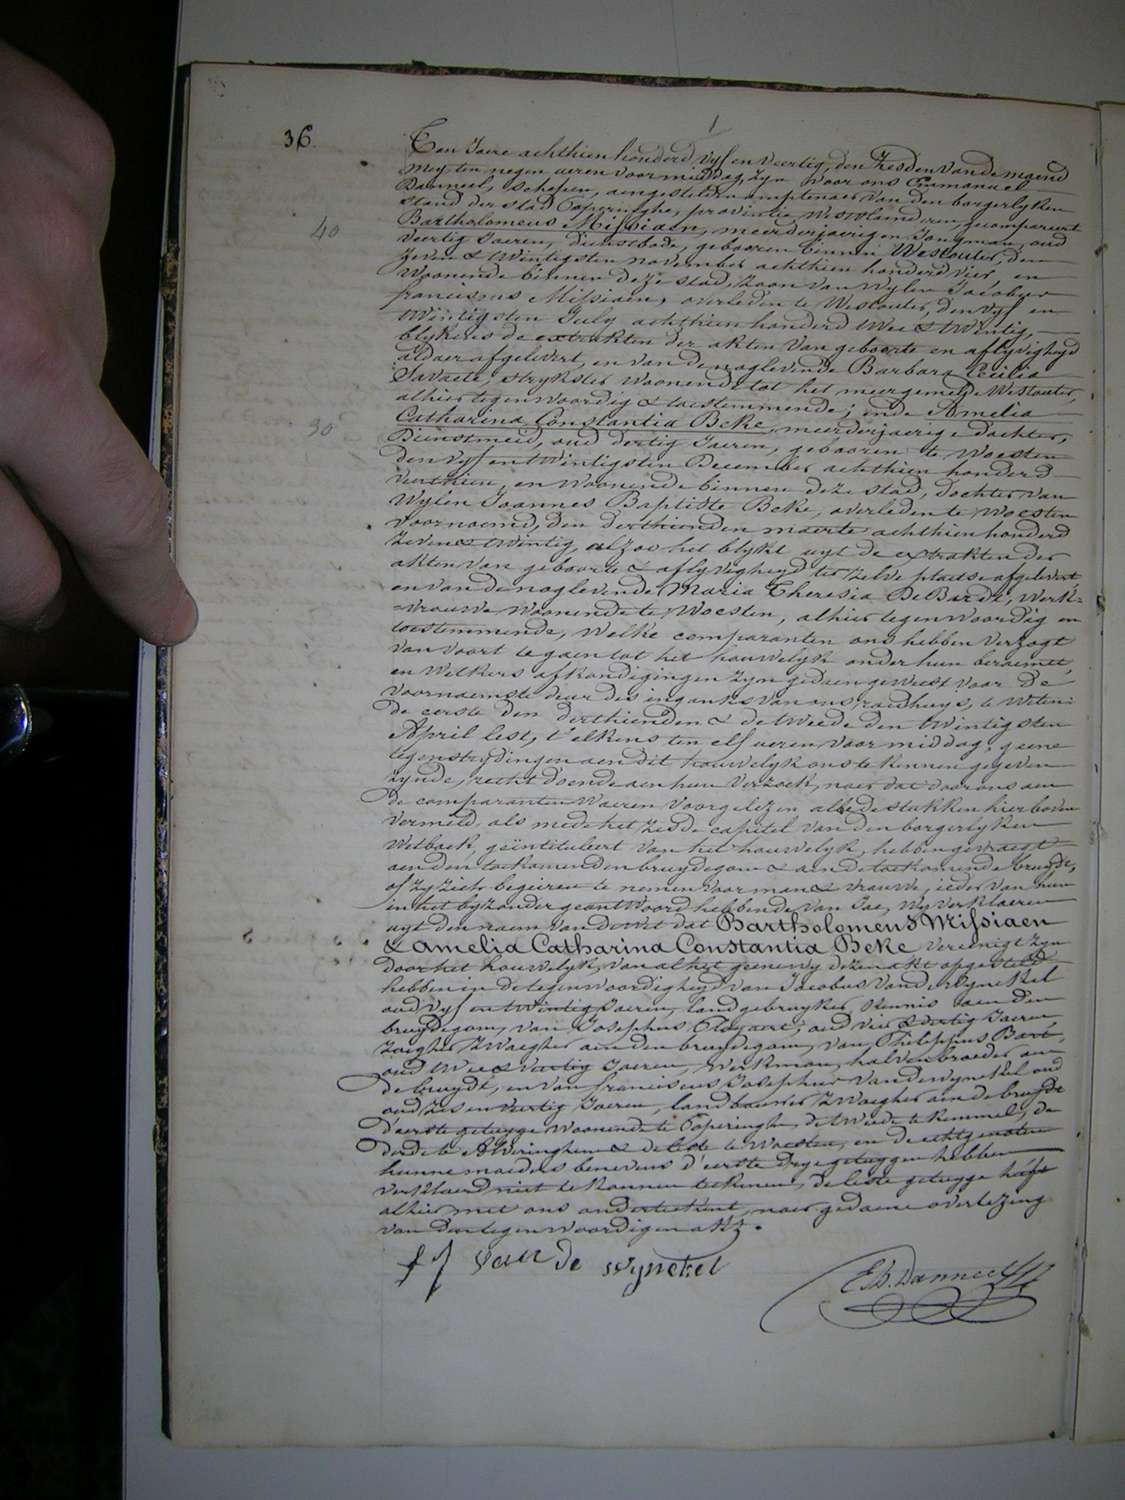 36.
Ten Jaere achthien honderd vyf en veertig, den Zesden van de maend
Mey ten negen ueren voormiddag, zyn voor ons Emmanuel
Danneel, Schepen, aengestelden amptenaer van den borgerlyken
stand der stad Poperinghe, provintie Westvlaenderen, gecompareert
40
Bartholomeus Missiaen, meerderjaerigen Jongman, oud
Veertig Jaeren, dienstbode, gebooren binnen Westouter, den
zeven & twintigsten november achthien honderd vier en
woonende binnen deze stad, zoon van wylen Jacobus
franciscus Missiaen, overleden te Westouter, den vyf en
twintigsten July achthien honderd twee & twintig,
blykens de extrakten der akten van geboorte en aflyvigheyd
aldaer afgelevert, en van de naglevende Barbara Cecilia
Savaete, strykster woonende tot het meergemelde Westouter,
alhier tegenwoordig & toestemmende; ende Amelia
30
Catharina Constantia Beke, meerderjaerige dochter,
Dienstmeid, oud dertig Jaeren, gebooren te Woesten
den vyf en twintigsten December achthien honderd
veerthien, en woonende binnen deze stad, dochter van
Wylen Joannes Baptiste Beke, overleden te Woesten
voornoemd, den derthienden maerte achthien honderd
Zeven & twintig, alzoo het blykt uyt de extrakten der
akten van geboorte & aflyvigheyd ter zelve plaetse afgelevert
en van de naglevende Maria Theresia De Bardt, Werk-
vrouwe woonende te Woesten, alhier tegenwoordig en
toestemmende, Welke comparanten ons hebben verzogt
van voort te gaen tot het houwelyk onder hun beraemt,
en welkers afkondigingen zyn gedaen geweest voor de
voornaemste deur des ingangks van ons raedhuys, te weten:
de eerste den derthienden & de tweede den twintigsten
April lest, t'elkens ten elf ueren voormiddag, geene
tegenstrydingen aen dit houwelyk ons te kennen gegeven
zynde, recht doende aen hun verzoek, naer dat door ons aen
de comparanten waeren voorgelezen al de stukken hierboven
vermeld, als mede het zesde capitel van den borgerlyken
Wetboek, geïntituleert van het houwelyk, hebben gevraegt
aen den toekomenden bruydegom & aen de toekomende bruydt,
of zy zich begeiren te nemen voor man & vrouwe, ieder van hun
in het byzonder geantwoord hebbende van Jae, wy verklaeren
uyt den naem van de Wet dat Bartholomeus Missiaen
& Amelia Catharina Constantia Beke vereenigt zyn
door het houwelyk, van al het geene wy dezen akt opgesteld
hebben in de tegenwoordigheyd van Jacobus Vande Wynckel
oud vyf en twintig Jaeren, landgebruyker, kennis aen den
bruydegom, van Josephus Cloyaert, oud vier & dertig Jaeren
zwaegher aen den bruydegom, van Philippus Bart,
oud twee & veertig Jaeren, werkman, halven broeder aen
de bruydt, en van franciscus Josephus Vande Wynckel oud
zes en veertig Jaeren, landbouwer, zwaegher aen de bruydt
d'eerste getuyge woonende te Poperinghe, de twede te Kemmel, de
derde te Elverdinghen & de leste te Woesten, en de echtgenoten
hunne moeders benevens d'eerste drye getuygen hebben
verklaerd niet te konnen tekenen, de leste getuyge heeft
alhier met ons onderteekent, naer gedaene overlezing
van den tegenwoordigen akt.
f j van de wynckel
E.B. Danneel